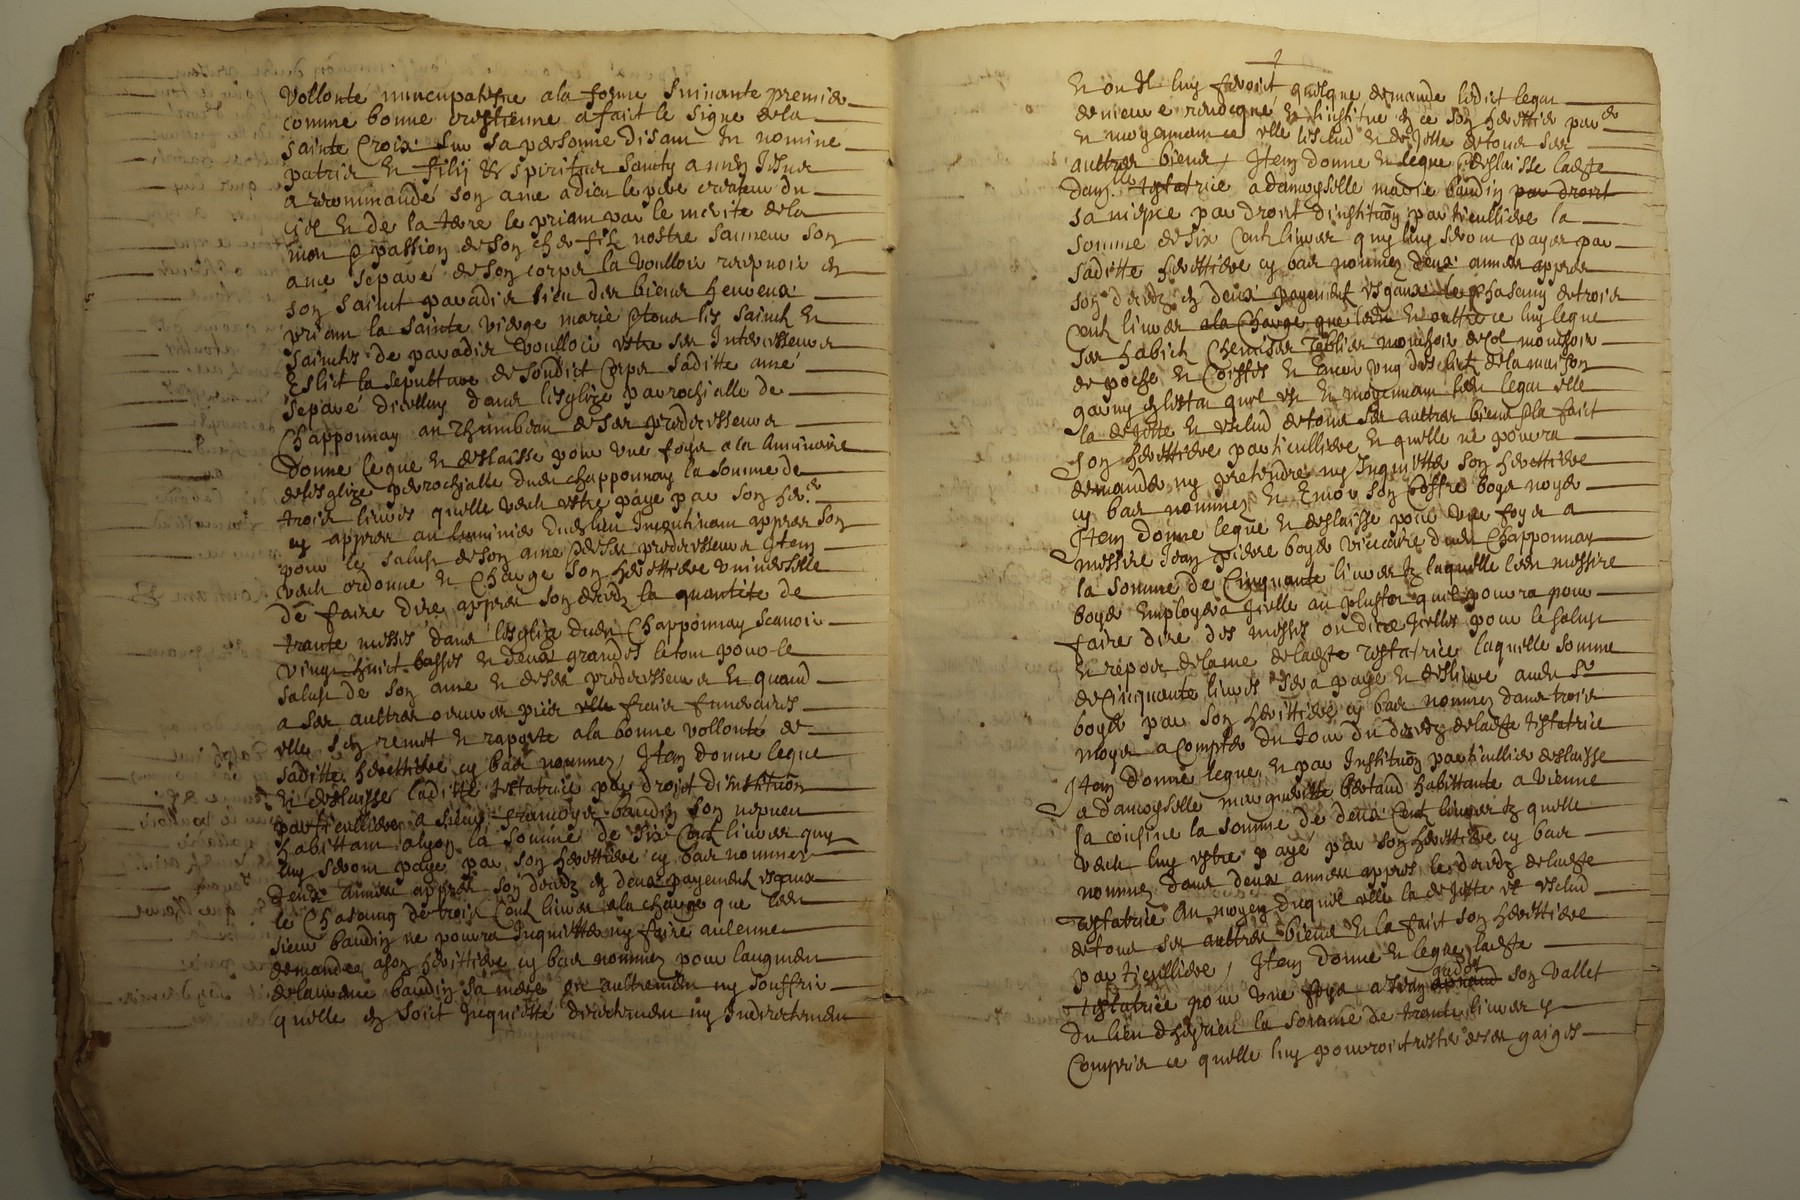 vollonté nuncupatifve a la forme suivante premier
comme bonne crestienne a fait le signe de la
sainte Croix sur sa personne disant In nomine
patris et filij et spiritus sancty amen Jesus
a recommandé son ame a dieu le pere createur du
ciel et de la terre le priant par le merite de la
mort et passion de son cher fils nostre sauveur son
ame separé de son corps la voulloir recepvoir en
son saint paradis lieu des biens heureux
priant la sainte vierge marie et tous les saincts et
sainctes de paradis voulloir estre ses Intercesseurs
Eslict la sepulture de sondict corps sa ditte ame
separé d'icelluy dans l'esglize parrochialle de
Chapponnay au thumbeau de ses predecesseurs
Donne legue et deslaisse pour une foys a la luminaire
de l'esglize perrochialle dudit Chapponnay la somme de
trois livres quelle veult estre payé par son her.re
cy appres au luminier dudit lieu Incontinant appres son
pour le salust de son ame et de ses predecesseurs Item
veult ordonne et charge son herettiere universelle
de faire dire appres son decedz la quantité de
trante messes dans l'esglize dudit Chapponnay scavoir
vingt huict basses et deux grandes le tout pour le
salust de son ame et de ses predecesseurs et quand
a ses auttres oeuvres pies frais funeraires
elle s'en remet et raporte a la bonne vollonté de
saditte herettiere cy bas nommez, Item donne legue
et deslaisse laditte testatrice par droict d'instituõn
particulliere a sieur françoys baudin son nepveu
habittant a lyon la somme de six cent livres quy
luy seront payé par son herettiere cy bas nommez
deux années appres son decedz en deux payement esgaux
le chascung de trois cent livres a la charge que ledit
sieur baudin ne pourra Inquietter ny faire aulcune
demandes a son herittiere cy bas nommez pour l'augment
de laurance baudin sa mere ou autrement ny souffrir
quelle en soict Inquietté directement ny Indirectement
et ou Il luy feroit quelque demande ledict legat
demeure revoqué et l'institue en ce son herittier par.er
et moyennant ce elle l'esclud et dejette de tous ses
auttres biens, Item donne et legue et deslaisse ladite
testatrice a damoyselle marie baudin par droit
sa niepce par droit d'instituõn particulliere la
somme de six cent livres quy luy seront payés par
saditte herettiere cy bas nommez deux années appres
son decedz en deux payement esgaux le chascung de trois
cent livres a la charge que ledit et outtre ce luy legue
ses habits chemises tablier mouchoir de col mouchoir
de poche et coiffes et encor ung des licts de la maison
garny en l'estat quil est et moyennant ledit legat elle
la dejette et esclud de tous ses auttres biens et la faict
son herettiere particulliere et quelle ne pourra
demander ny pretendre ny Inquietter son herettiere
cy bas nommez et encor son coffre boys noyer
Item donne legue et deslaisse pour une foys a
messire Jean pierre boyer viccaire dudit Chapponnay
la somme de Cinquante livres tz laquelle ledit messire
boyer employera Icelle au plustot quil pourra pour
faire dire des messes ou dire Icelles pour le salust
et repos de lame de ladite testatrice laquelle somme
de cinquante livres sera payé et deslivre audit Sr
boyer par son herittiere cy bas nommez dans trois
moys a compter du Jour du decedz de ladite testatrice
Item donne legue et par Instituõn particulliere deslaisse
a damoyselle margueritte bertaud habittante a vienne
sa cousine la somme de deux cent livres tz quelle
veult luy estre payé par son herettiere cy bas
nommez dans deux années appres le decedz de ladite
testatrice Au moyen duquel elle la dejette et esclud
de tous ses auttres biens et la fait son herettiere
particulliere, Item donne et legue ladite
testatrice pour une foys a Jean son vallet
du lieu d'heyrieu la somme de trante livres y
compris ce quelle luy pourroit rester de ses gaiges